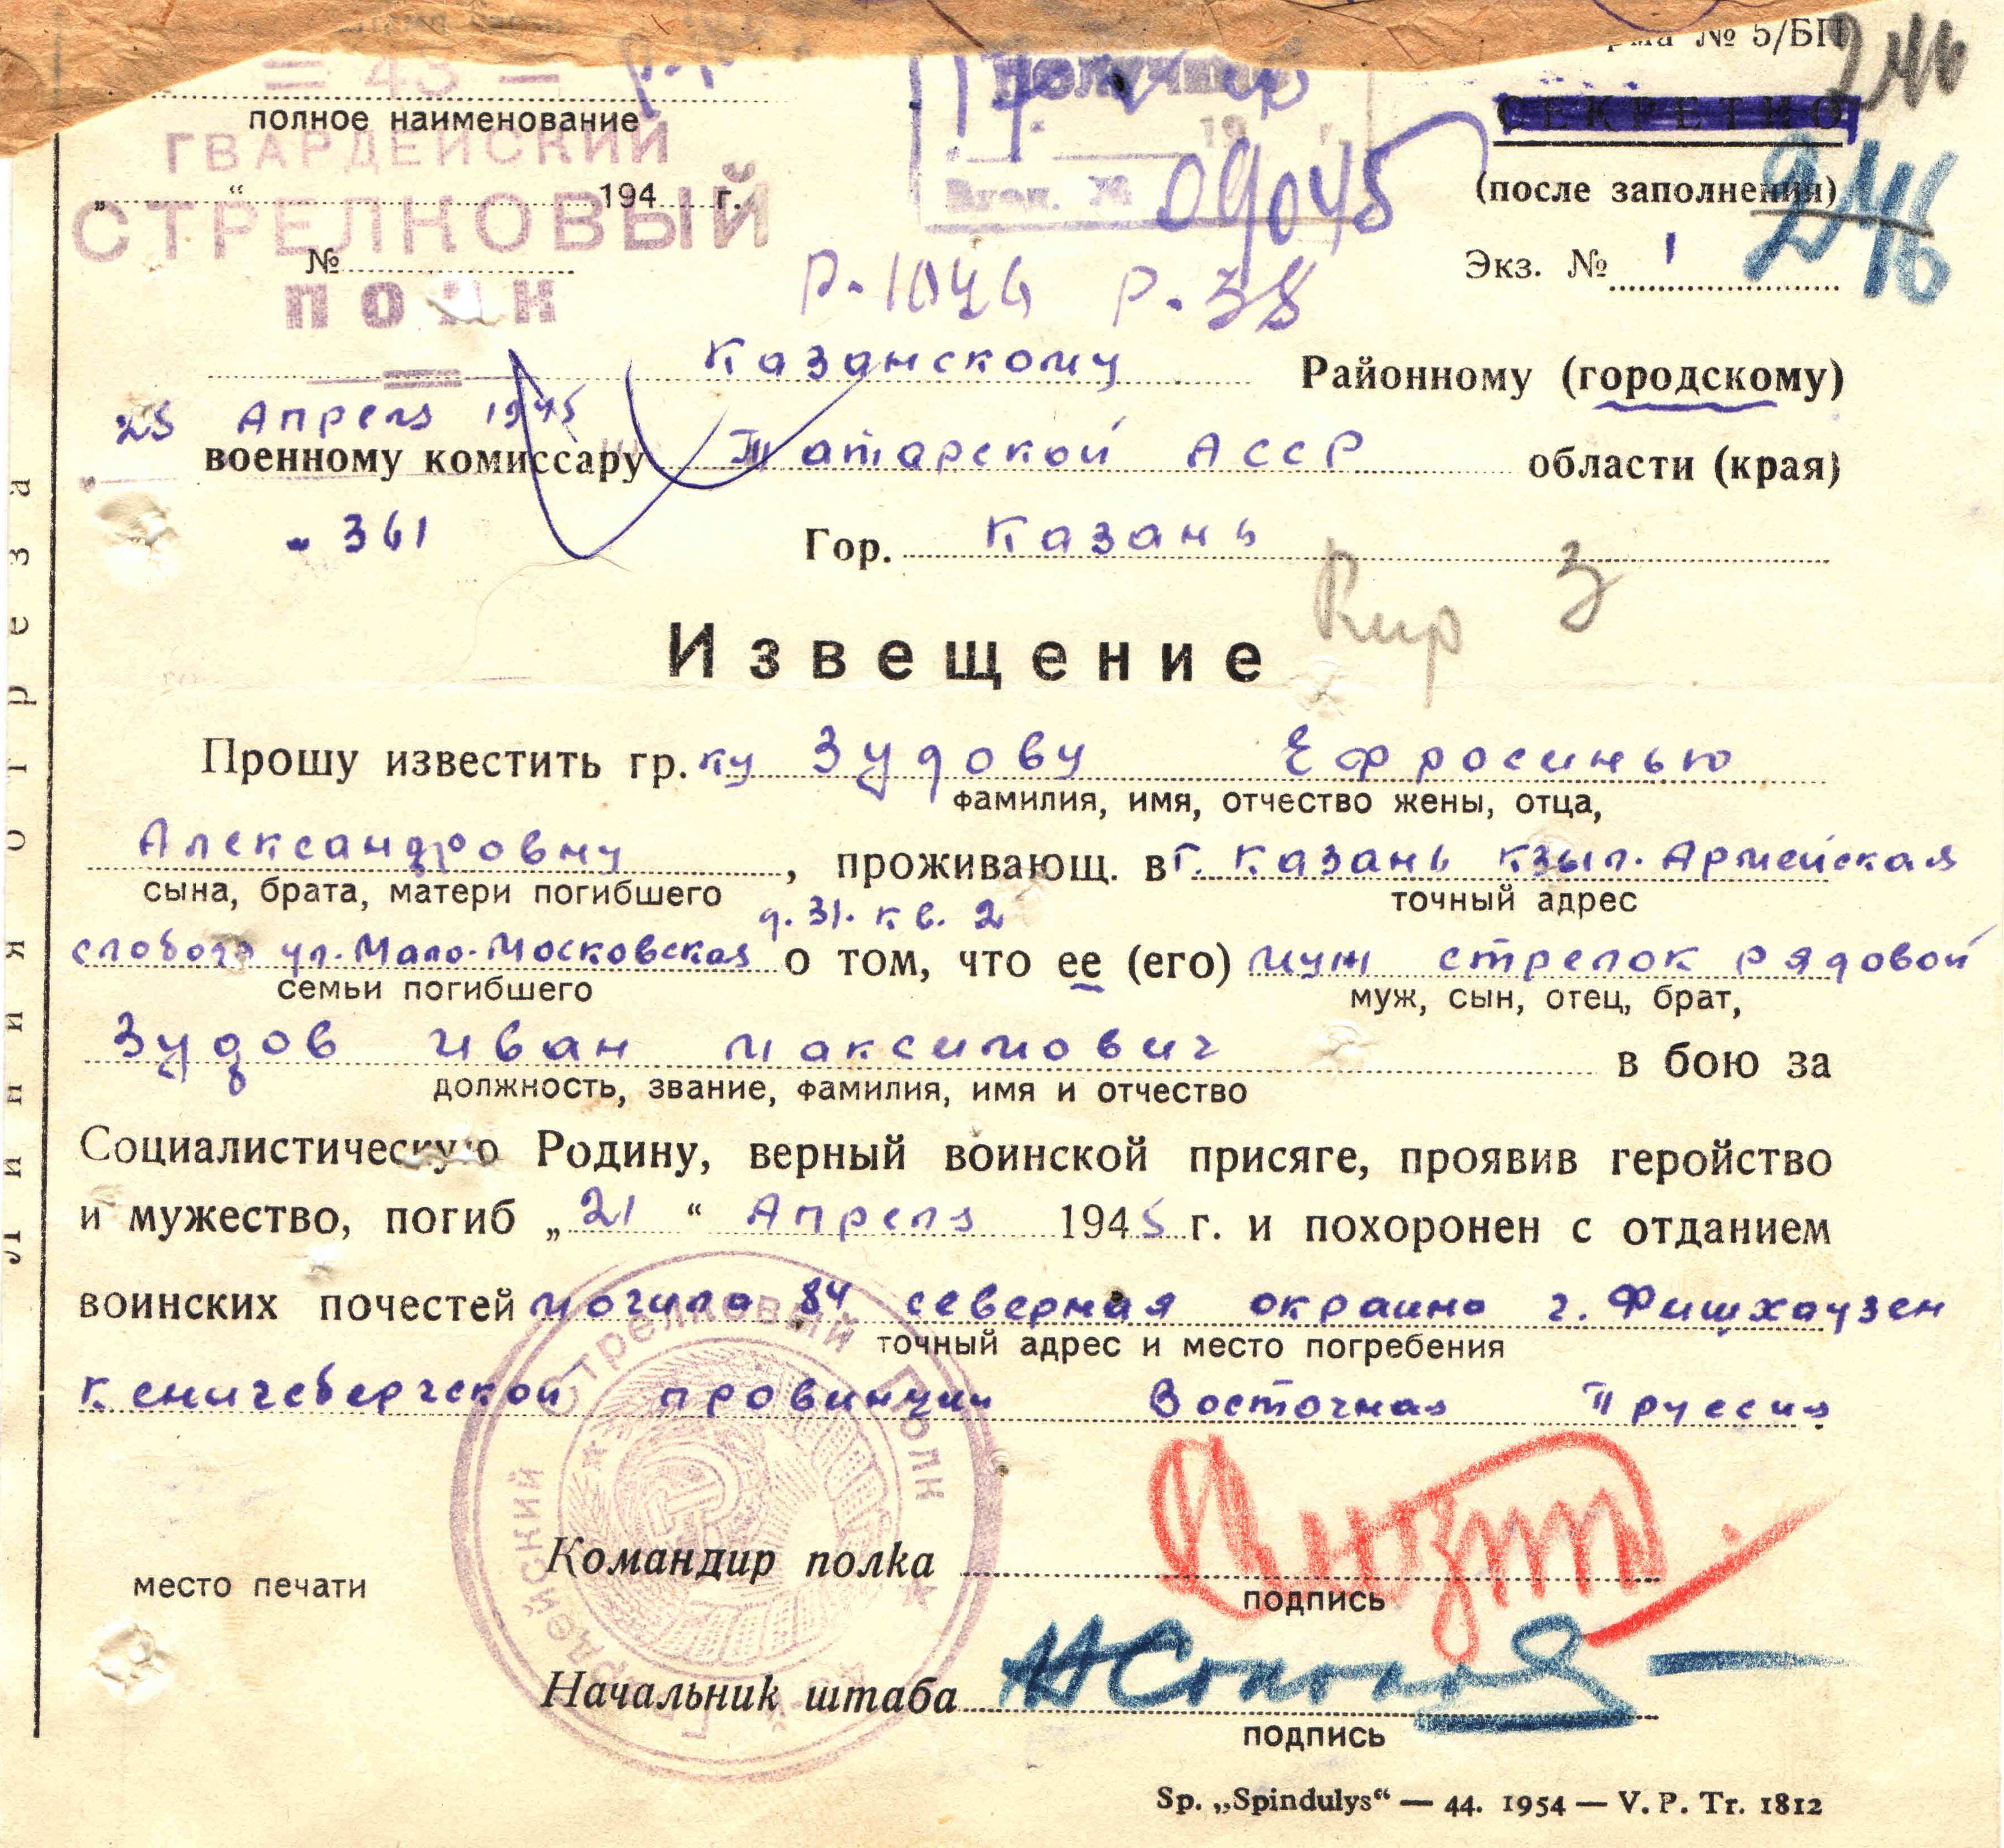 рма № 5/БП
246
= 43 =
Получено
СЕКРЕТНО
полное наименование
ГВАРДЕЙСКИЙ
19 г.
„ “ 194 г.
(после заполнения)
246
СТРЕЛКОВЫЙ
Вход. № 09045
№
Экз. № 1
ПОЛК
Р.1046 Р.38
Казанскому Районному (городскому)
25 Апреля 1945
военному комиссару Татарской АССР области (края)
361
Гор. Казань
Кир 3
Извещение
Прошу известить гр.ку Зудову Ефросинью
фамилия, имя, отчество жены, отца,
Александровну, проживающ. в г. Казань Кзыл. Армейская
сына, брата, матери погибшего точный адрес
д. 31. кв. 2
слобода ул. Мало-Московская о том, что ее (его) муж стрелок рядовой
семьи погибшего муж, сын, отец, брат,
Зудов Иван Максимович в бою за
должность, звание, фамилия, имя и отчество
Социалистическую Родину, верный воинской присяге, проявив геройство
и мужество, погиб „21“ Апреля 1945 г. и похоронен с отданием
воинских почестей могила 84 северная окраина г. Фишхаузен
точный адрес и место погребения
Кенигсбергской провинции Восточная Пруссия
Стрелковый Полк
Гвардейский
Командир полка
место печати
подпись
Начальник штаба
подпись
Sp. „Spindulys“ — 44. 1954 — V. P. Tr. 1812
Линия отреза